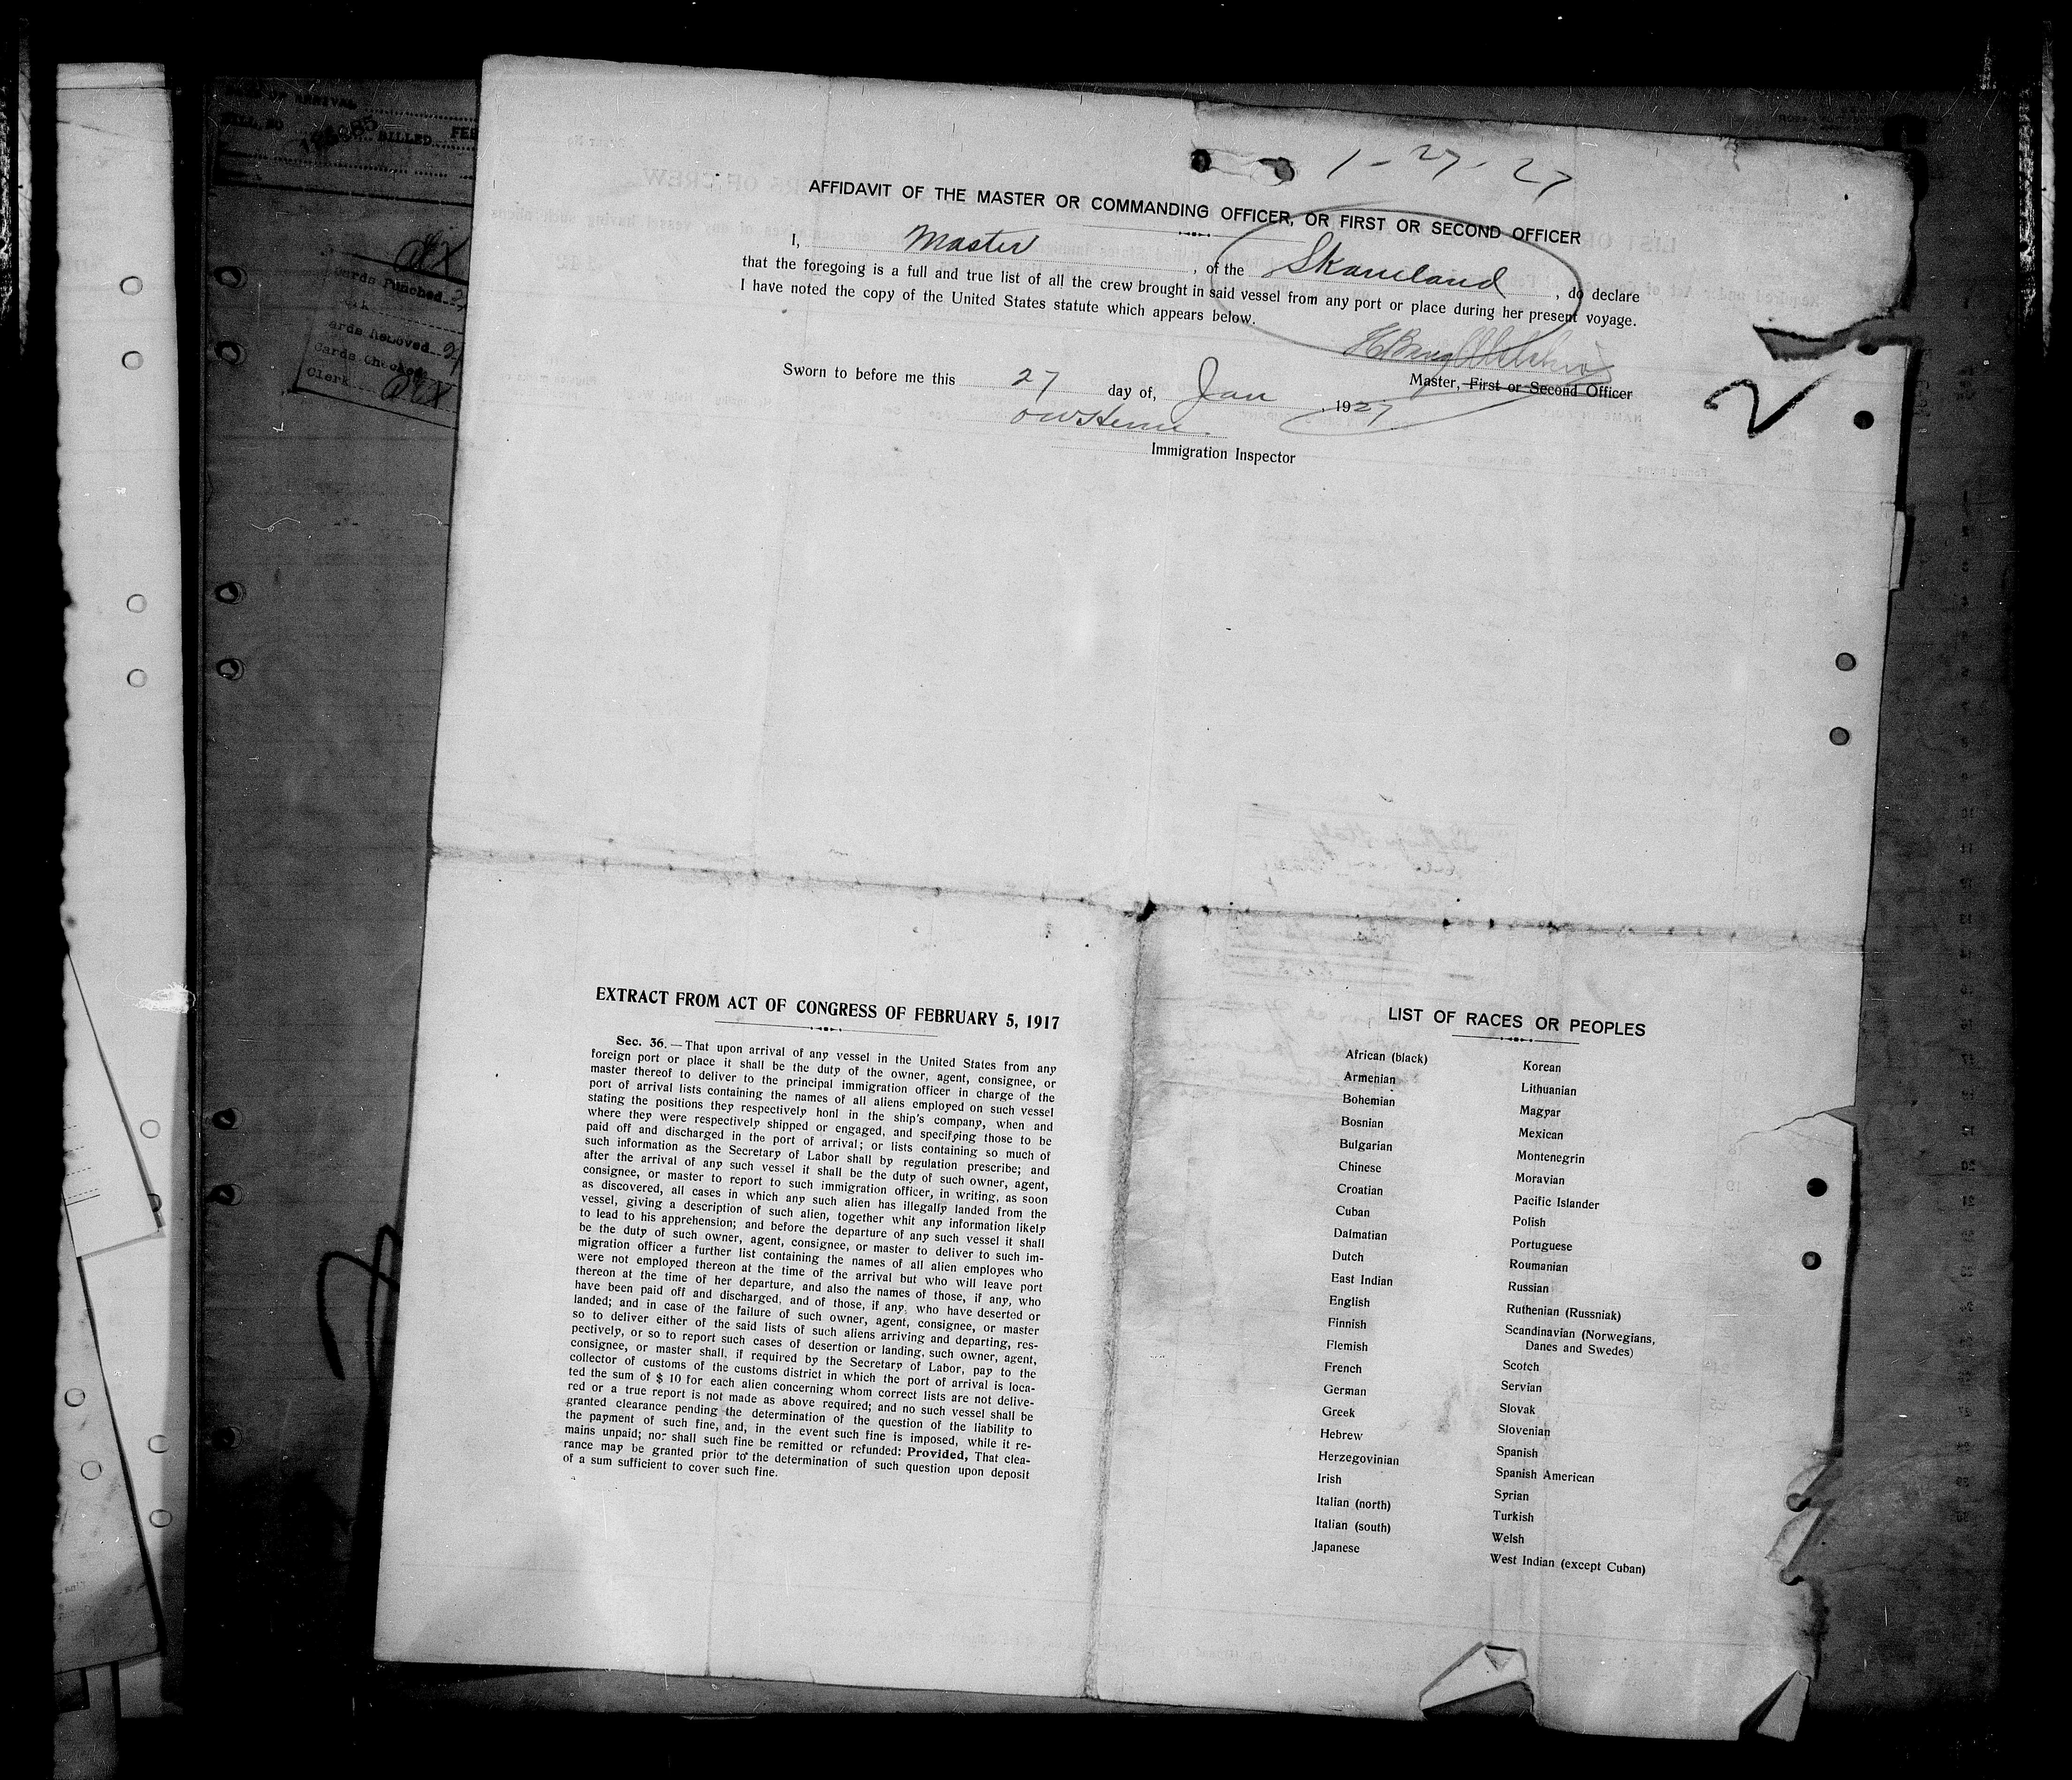 1-27-27
AFFIDAVIT OF THE MASTER OR COMMANDING OFFICER, OR FIRST OR SECOND OFFICER
I, Master, of the Skaneland, do declare
that the foregoing is a full and true list of all the crew brought in said vessel from any port or place during her present voyage.
I have noted the copy of the United States statute which appears below.
Master, First or Second Officer
Sworn to before me this 27 day of, Jan 1927
Immigration Inspector
2
BILLED FEB
Cards Punched
Cards Checked
Clerk
EXTRACT FROM ACT OF CONGRESS OF FEBRUARY 5, 1917
Sec. 36.—That upon arrival of any vessel in the United States from any
foreign port or place it shall be the duty of the owner, agent, consignee, or
master thereof to deliver to the principal immigration officer in charge of the
port of arrival lists containing the names of all aliens employed on such vessel
stating the positions they respectively honl in the ship's company, when and
where they were respectively shipped or engaged, and specifying those to be
paid off and discharged in the port of arrival; or lists containing so much of
such information as the Secretary of Labor shall by regulation prescribe; and
after the arrival of any such vessel it shall be the duty of such owner, agent,
consignee, or master to report to such immigration officer, in writing, as soon
as discovered, all cases in which any such alien has illegally landed from the
vessel, giving a description of such alien, together whit any information likely
to lead to his apprehension; and before the departure of any such vessel it shall
be the duty of such owner, agent, consignee, or master to deliver to such im-
migration officer a further list containing the names of all alien employes who
were not employed thereon at the time of the arrival but who will leave port
thereon at the time of her departure, and also the names of those, if any, who
have been paid off and discharged, and of those, if any, who have deserted or
landed; and in case of the failure of such owner, agent, consignee, or master
so to deliver either of the said lists of such aliens arriving and departing, res-
pectively, or so to report such cases of desertion or landing, such owner, agent,
consignee, or master shall, if required by the Secretary of Labor, pay to the
collector of customs of the customs district in which the port of arrival is loca-
ted the sum of $ 10 for each alien concerning whom correct lists are not delive-
red or a true report is not made as above required; and no such vessel shall be
granted clearance pending the determination of the question of the liability to
the payment of such fine, and, in the event such fine is imposed, while it re-
mains unpaid; nor shall such fine be remitted or refunded: Provided, That clea-
rance may be granted prior to the determination of such question upon deposit
of a sum sufficient to cover such fine.
LIST OF RACES OR PEOPLES
African (black)
Armenian
Bohemian
Bosnian
Bulgarian
Chinese
Croatian
Cuban
Dalmatian
Dutch
East Indian
English
Finnish
Flemish
French
German
Greek
Hebrew
Herzegovinian
Irish
Italian (north)
Italian (south)
Japanese
Korean
Lithuanian
Magyar
Mexican
Montenegrin
Moravian
Pacific Islander
Polish
Portuguese
Roumanian
Russian
Ruthenian (Russniak)
Scandinavian (Norwegians,
Danes and Swedes)
Scotch
Servian
Slovak
Slovenian
Spanish
Spanish American
Syrian
Turkish
Welsh
West Indian (except Cuban)